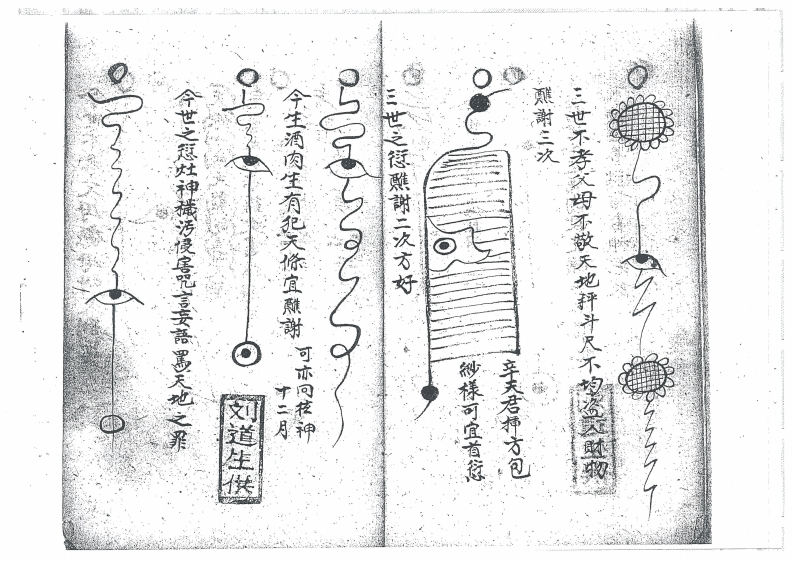 三世不孝父母不敬天地秤斗尺不均盗人財物
醮謝三次
辛天君捧方包
紗様可宜首愆
三世之愆醮謝二次方好
今生酒肉生有犯天條宜醮謝
可亦问
神
十二月
刘道生供
今世之愆灶神穢污侵害咒言妄語罵天地之罪